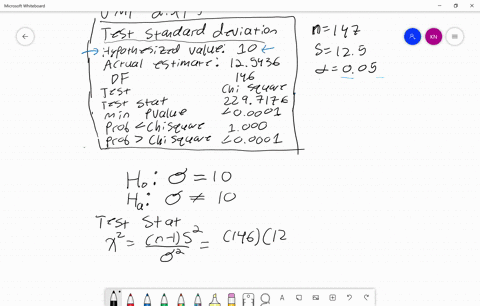 Microsoft Whiteboard
JMP
Test Standard deviation
Hypothesized value: 10
Actual estimate: 12.5436
DF 146
Test Chi square
Test stat 229.7176
min Pvalue <0.0001
Prob < Chisquare 1.000
Prob > Chi square <0.0001
n=147
S=12.5
α=0.05
KN
H₀: σ = 10
Hₐ: σ ≠ 10
Test Stat
χ² = (n-1)S² / σ² = (146)(12